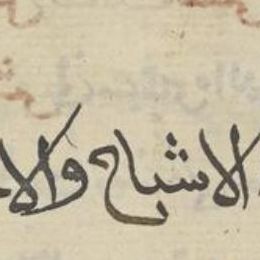 الاشباح والا